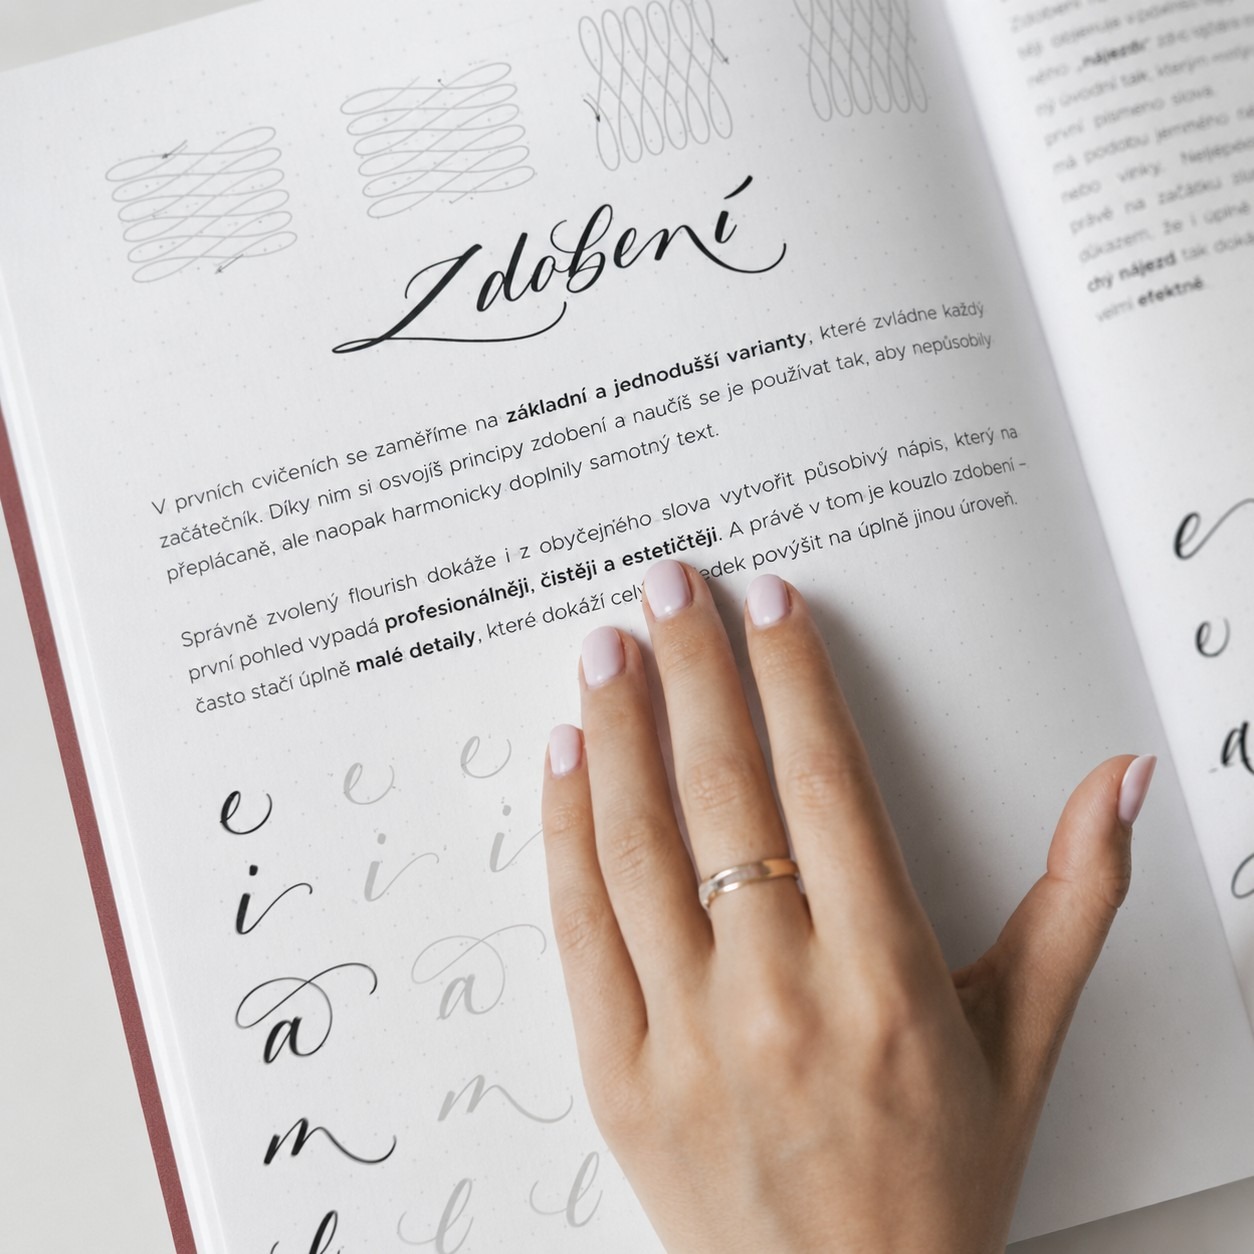 Zdobení
V prvních cvičeních se zaměříme na základní a jednodušší varianty, které zvládne každý
začátečník. Díky nim si osvojíš principy zdobení a naučíš se je používat tak, aby nepůsobily
přeplácaně, ale naopak harmonicky doplnily samotný text.
Správně zvolený flourish dokáže i z obyčejného slova vytvořit působivý nápis, který na
první pohled vypadá profesionálněji, čistěji a estetičtěji. A právě v tom je kouzlo zdobení –
často stačí úplně malé detaily, které dokáží povýšit na úplně jinou úroveň.
e e e
i i i
a a
m m
l l l
první písmeno slova.
má podobu jemného
nebo vlnky. Nejlépe
právě na začátku
důkazem, že i úplně
chý nájezd tak
velmi efektně.
e
e
a